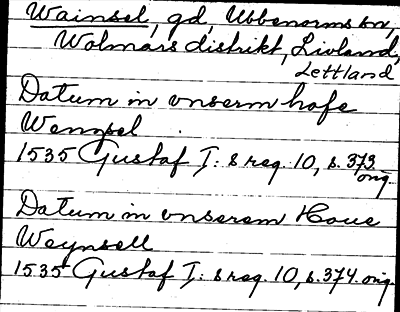 Wainsel, gd, Ubbenorms sn,
Wolmars distrikt, Livland,
Lettland
Datum in vnserm hofe
Wenysel
1535 Gustaf I: s reg. 10, s. 373
orig.
Datum in vnserem Houe
Weynsell
1535 Gustaf I: s reg. 10, s. 374. orig.